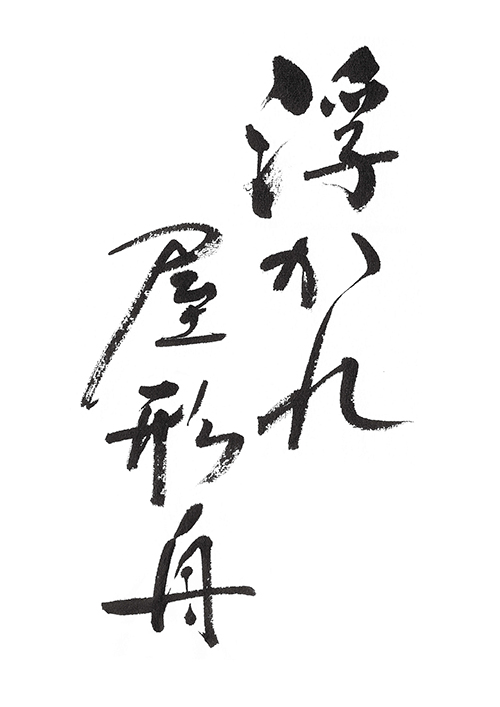 浮かれ
屋形舟